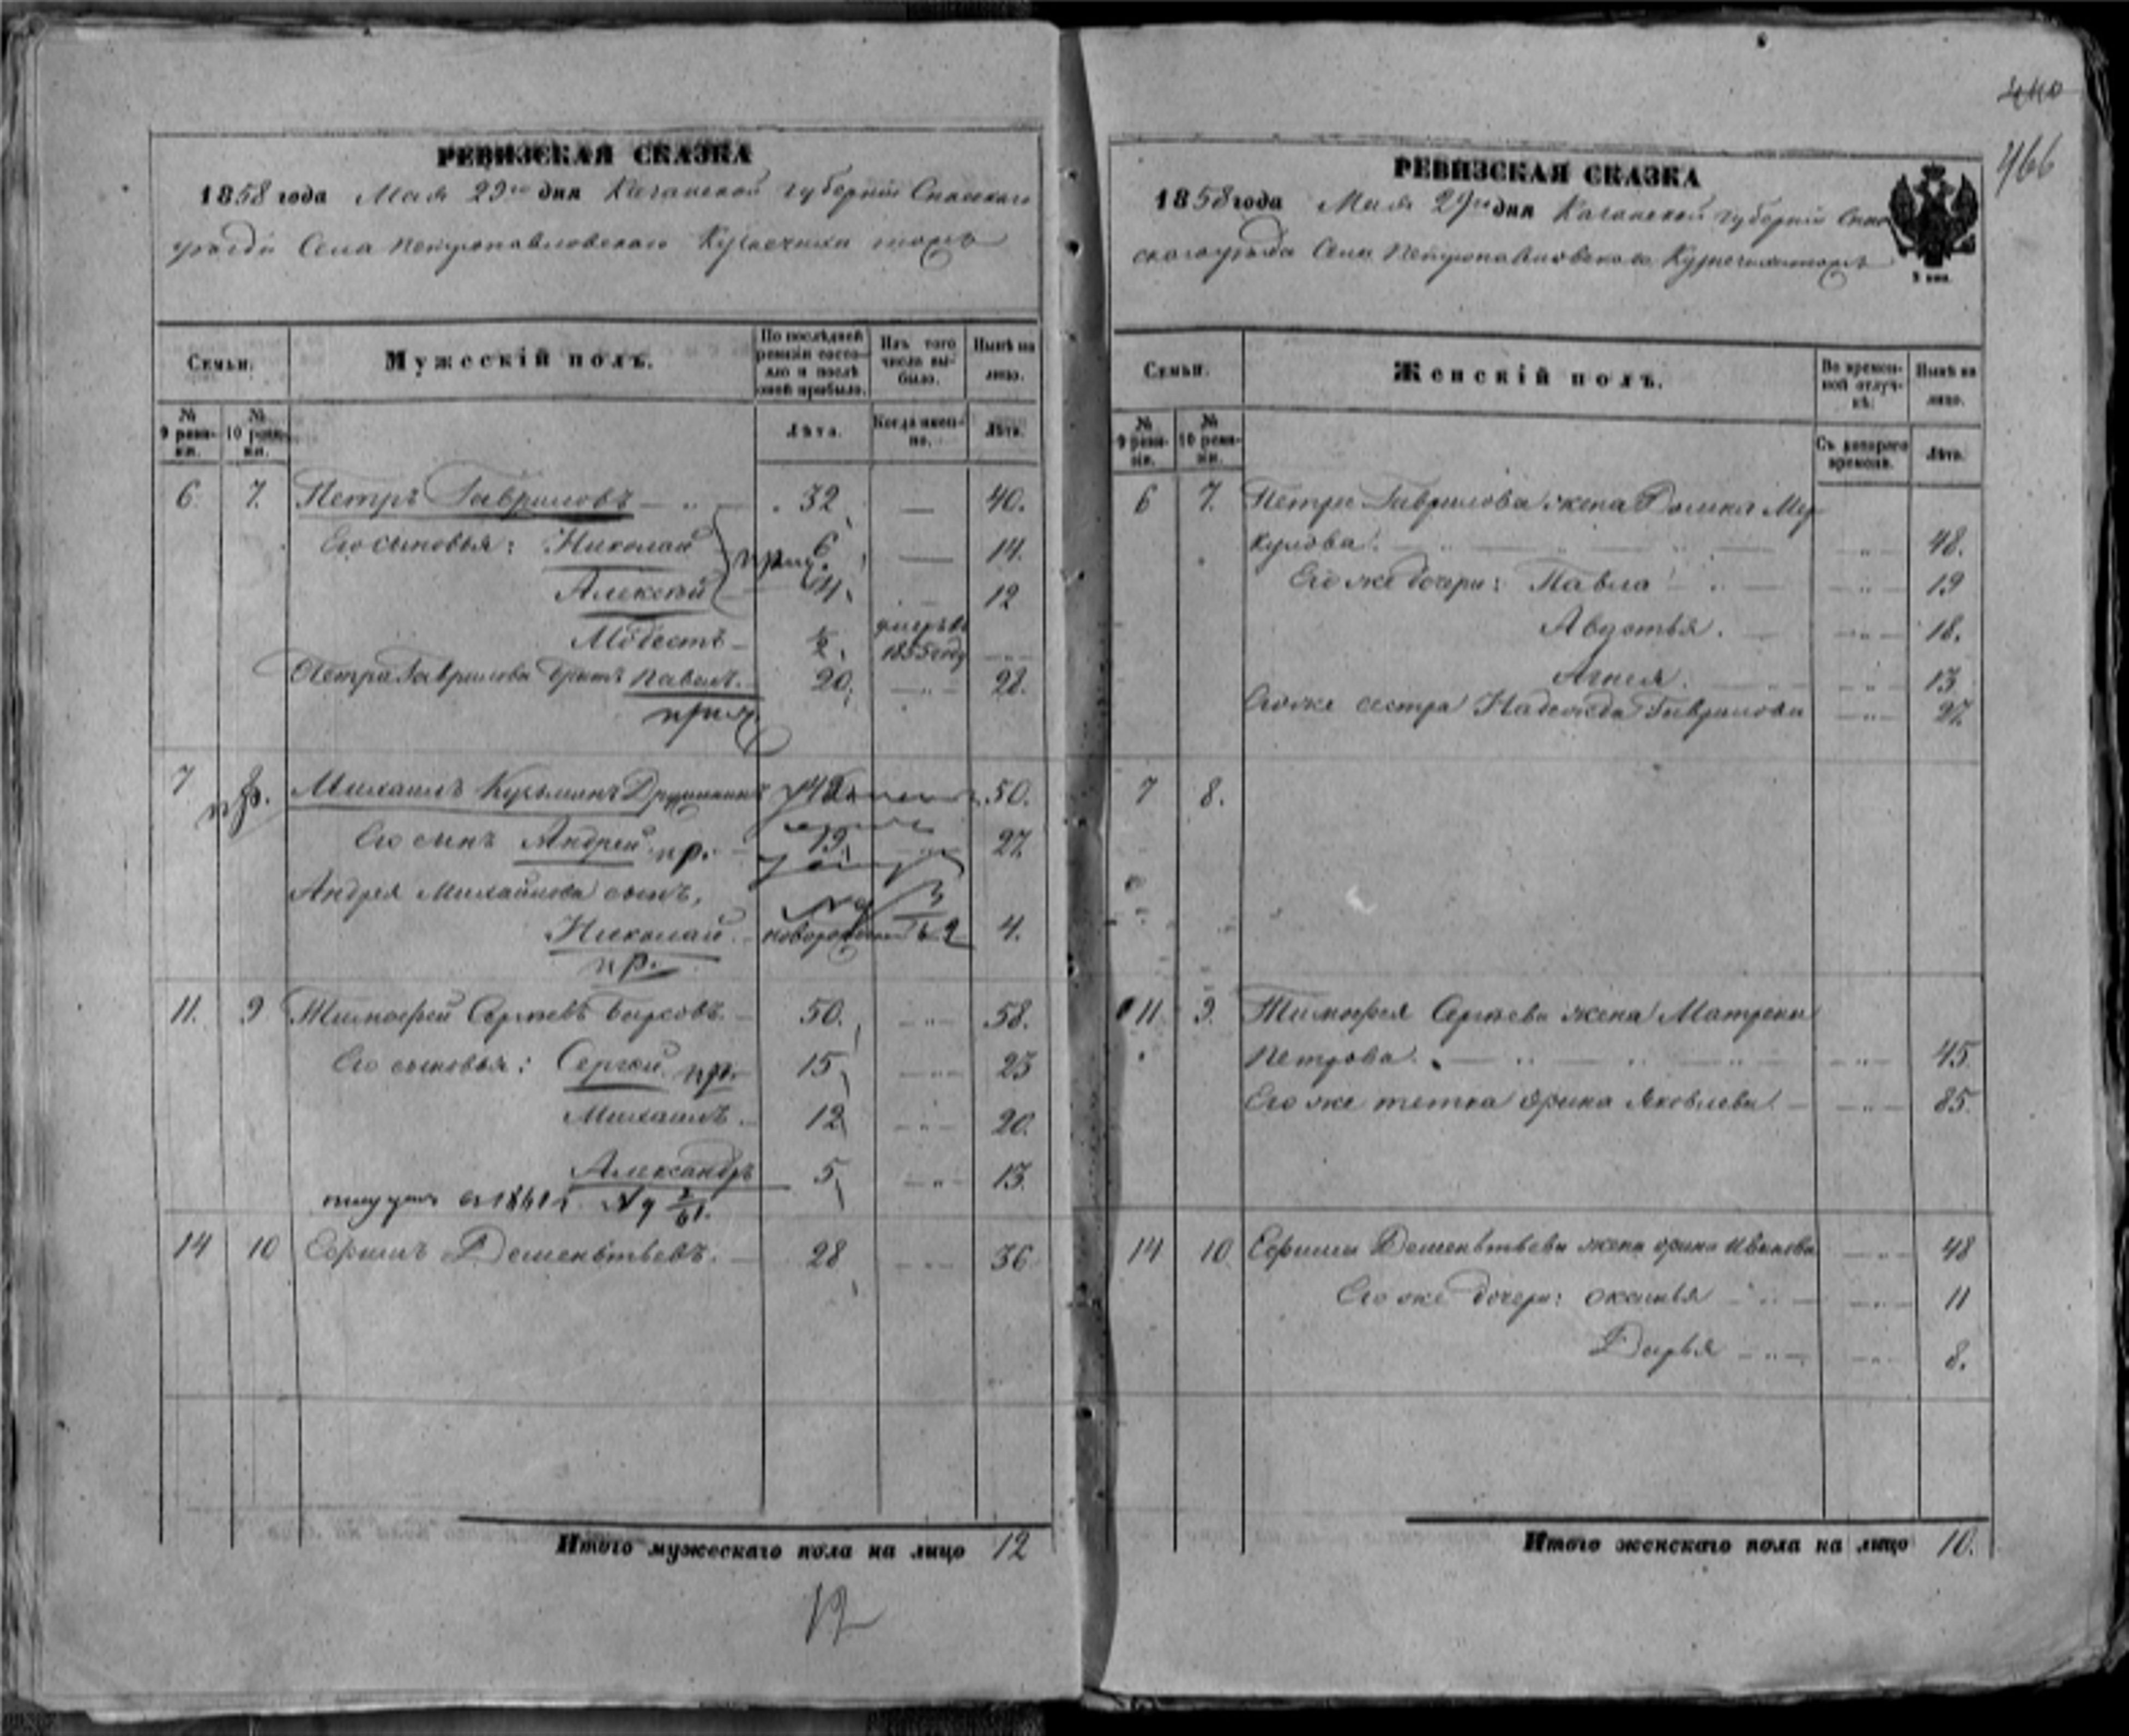 РЕВИЗСКАЯ СКАЗКА
1858 года Мая 29го дня Казанской губернии Спаскаго
уезда Села Петропавловскаго Кузнечиха тожъ
Семьи.
Мужескій полъ.
По послѣдней ревизіи состояло и послѣ оной прибыло.
Изъ того числа выбыло.
Нынѣ на лицо.
№ 9 ревизіи.
№ 10 ревизіи.
Лѣта.
Когда именно.
Лѣта.
6. 7. Петръ Гавриловъ 32 40.
Его сыновья: Николай 6 14.
Алексѣй 4. 12
Модестъ ½. умеръ въ 1855 году
Петра Гаврилова братъ Павелъ. 20. 28.
7 8. Михаилъ Кузьминъ 42 50.
Его сынъ Андрей пр. 19. 27.
Андрея Михайлова сынъ,
Николай новорожден 4.
пр.
11. 9 Тимофей Сергѣевъ Барсовъ 50. 58.
Его сыновья: Сергѣй пр. 15 23
Михаилъ. 12 20.
Александръ 5 13.
въ 1861 г. № 9
14 10 Ефимъ Дементьевъ. 28 36
Итого мужескаго пола на лицо 12
12
466
РЕВИЗСКАЯ СКАЗКА
1858 года Мая 29го дня Казанской губерніи Спас
скаго уезда Села Петропавловскаго Кузнечиха тожъ
Семьи.
Женскій полъ.
Во временной отлучкѣ:
Нынѣ на лицо.
№ 9 ревизіи.
№ 10 ревизіи.
Съ котораго времени.
Лѣта.
6 7. Петра Гаврилова жена Домна Мер
кулова. 48.
Его же дочери: Павла 19
Авдотья. 18.
Агнея. 13
Его же сестра Надежда Гаврилова 27.
7 8.
11 9. Тимофея Сергѣева жена Матрена
Петрова. 45.
Его же тетка Орина Яковлева 85.
14 10. Ефима Дементьева жена Орина Иванова 48
Его же дочери: Оксинья 11
Дарья 8.
Итого женскаго пола на лицо 10.